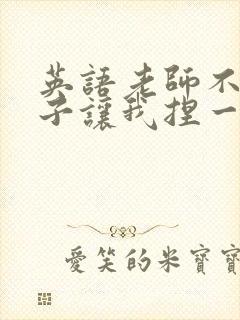 英語老師不
子讓我捏一
愛笑的米寶寶